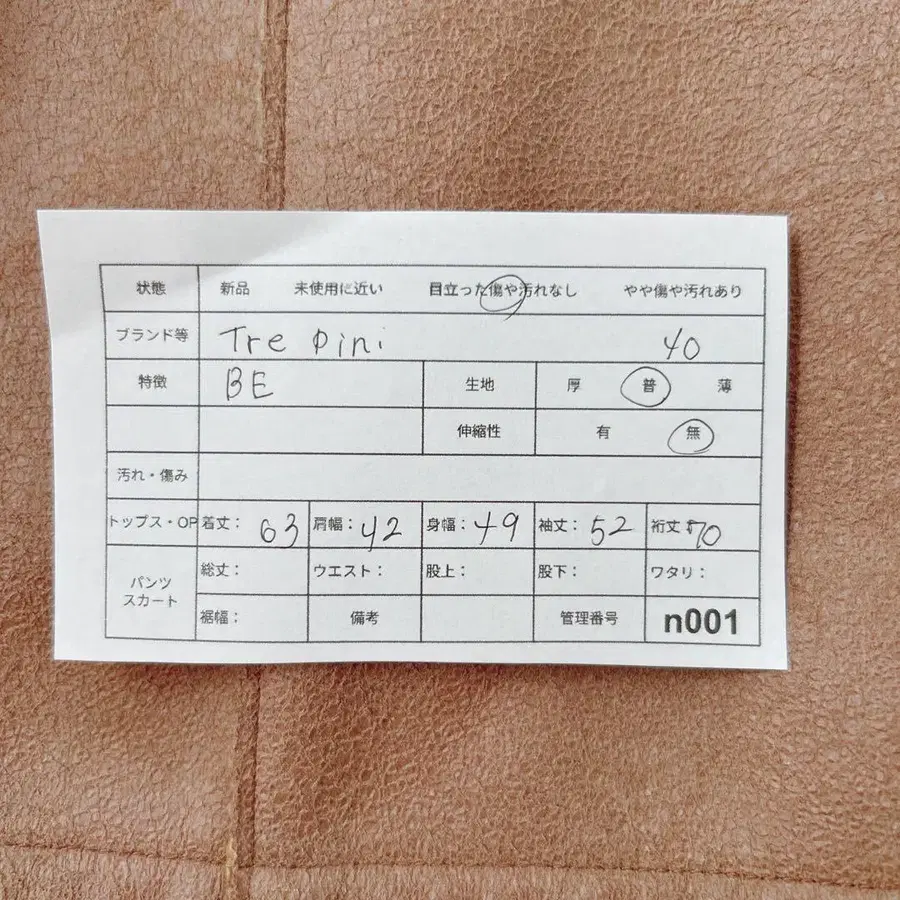 状態 新品 未使用に近い 目立った傷や汚れなし やや傷や汚れあり
ブランド等 Tre pini 40
特徴 BE 生地 厚 普 薄
伸縮性 有 無
汚れ・傷み
トップス・OP 着丈： 63 肩幅： 42 身幅： 49 袖丈： 52 裄丈 70
パンツ スカート 総丈： ウエスト： 股上： 股下： ワタリ：
裾幅： 備考 管理番号 n001